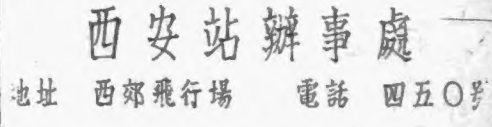 西安站辦事處
地址 西郊飛行場 電話 四五〇号